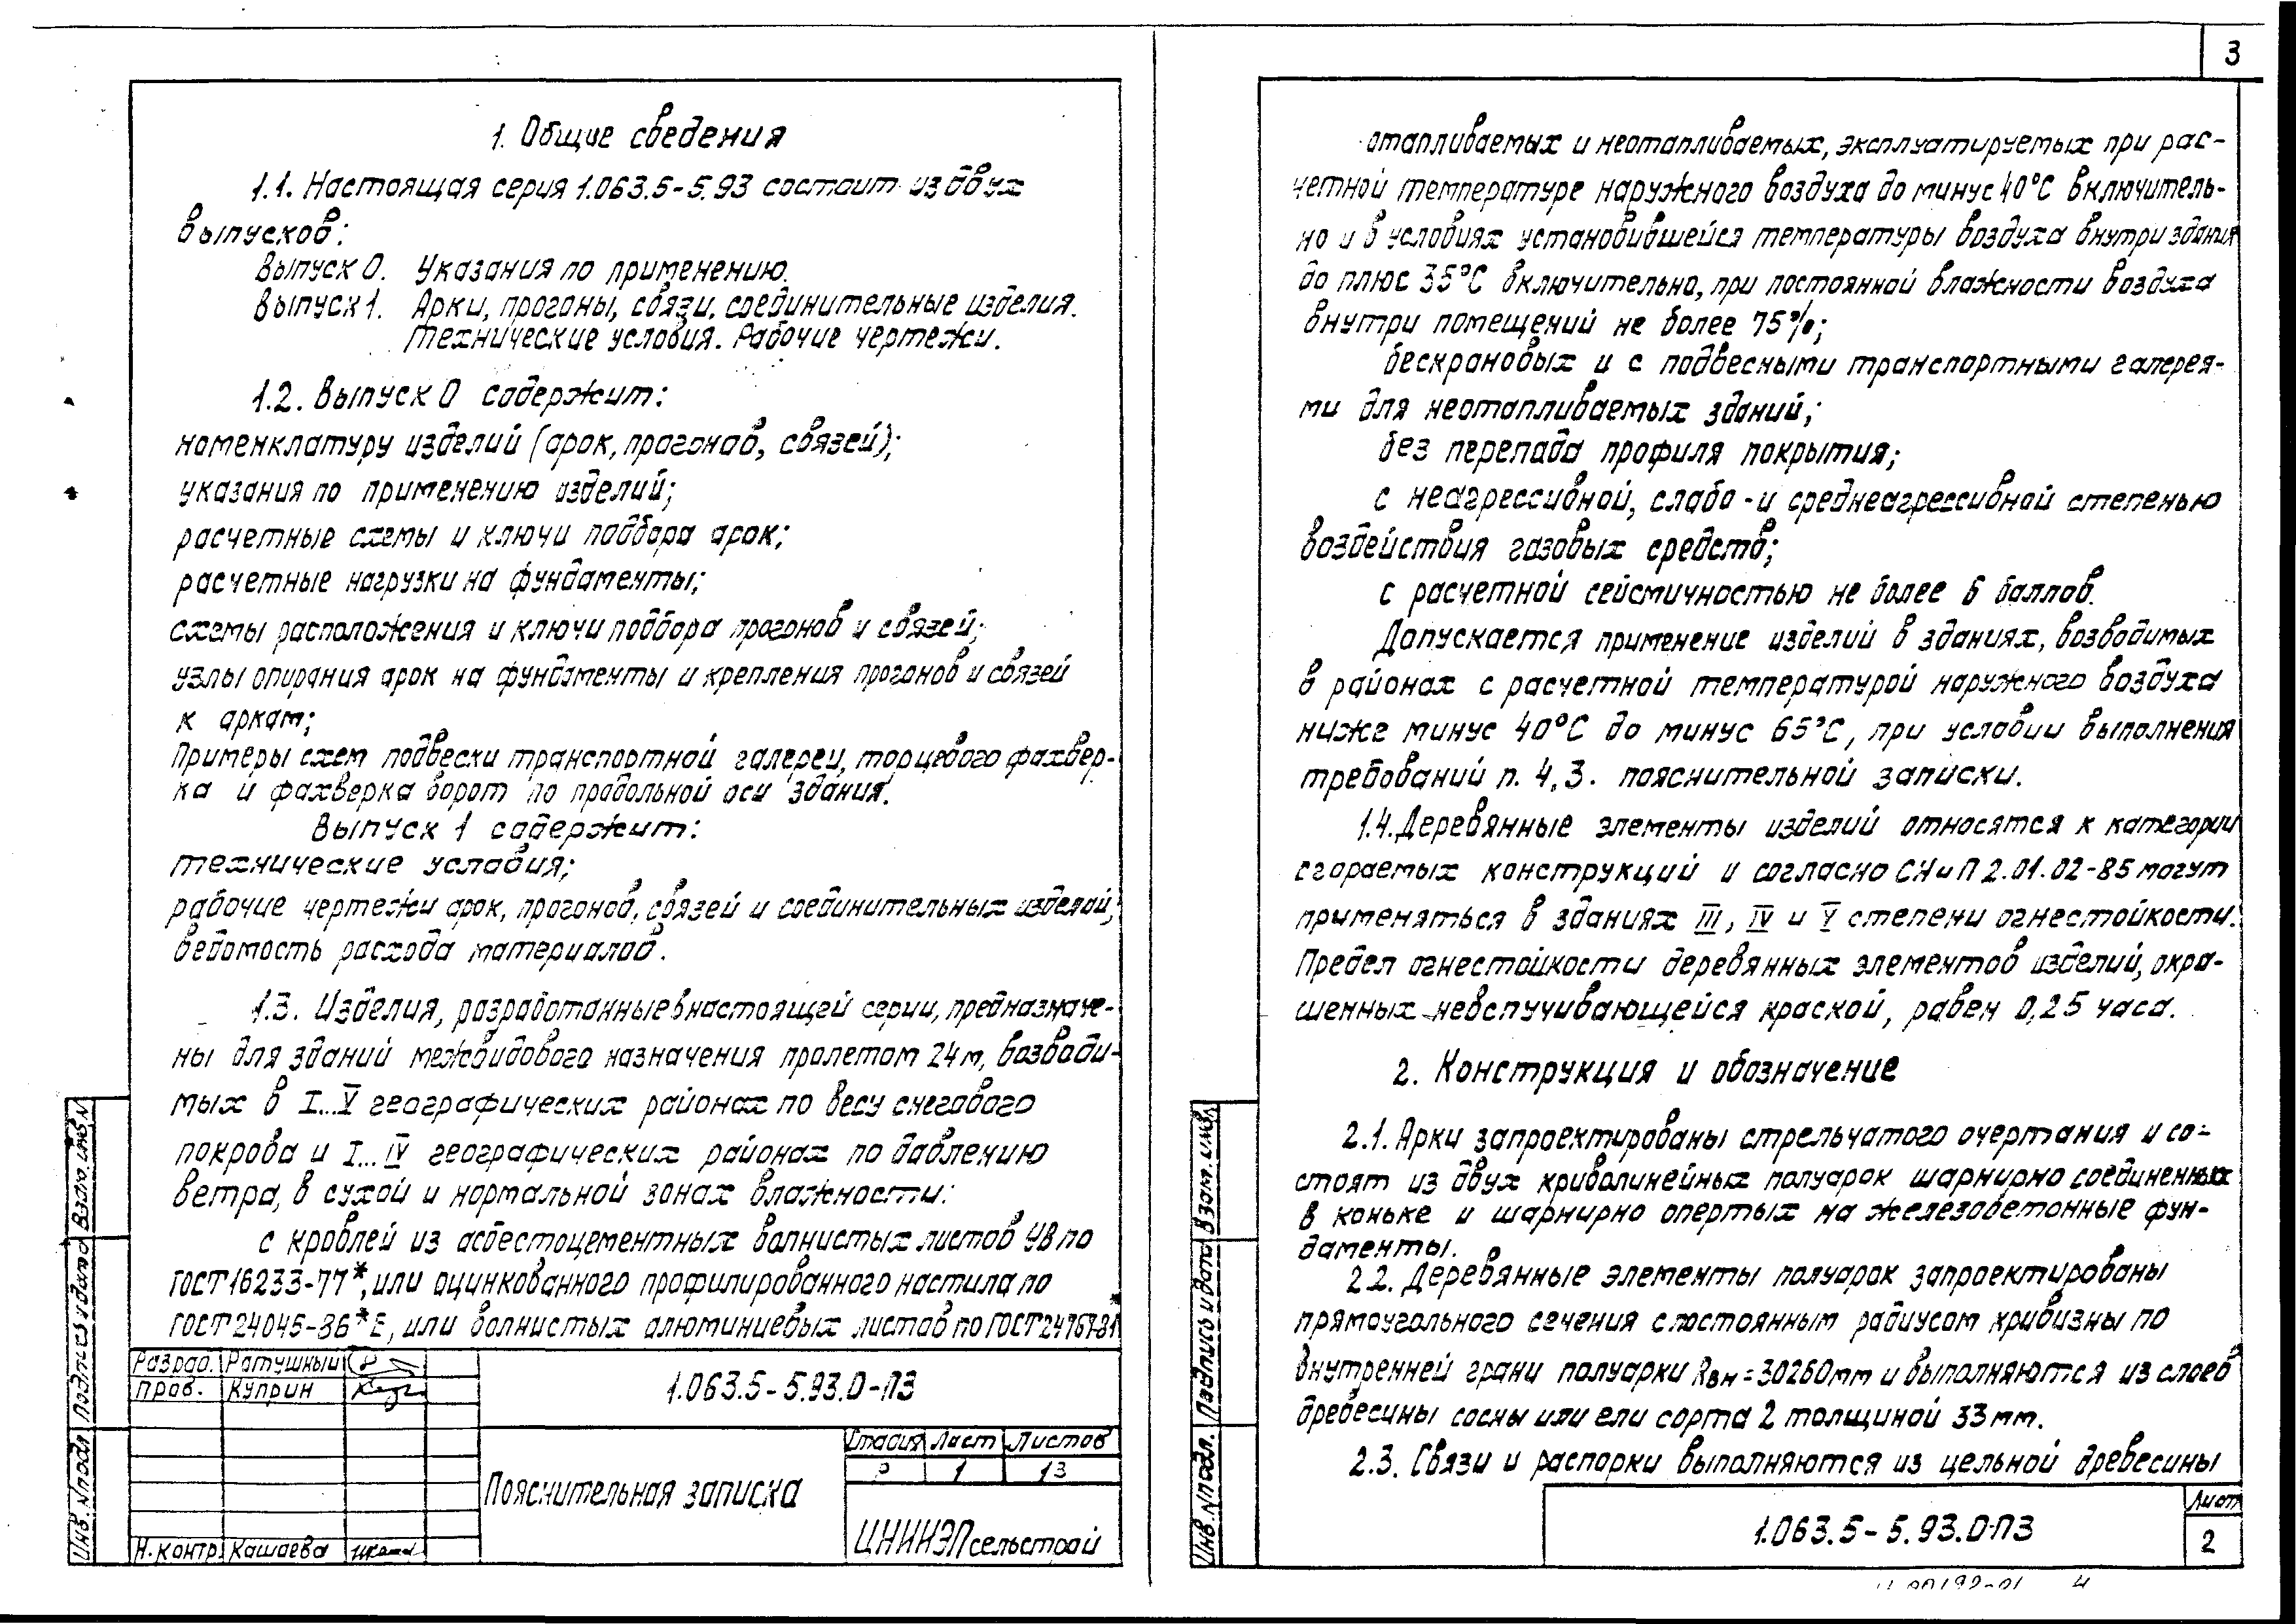 1. Общие сведения
1.1. Настоящая серия 1.063.5-5.93 состоит из двух
выпусков:
Выпуск 0. Указания по применению.
Выпуск 1. Арки, прогоны, связи, соединительные изделия.
Технические условия. Рабочие чертежи.
1.2. Выпуск 0 содержит:
номенклатуру изделий (арок, прогонов, связей);
указания по применению изделий;
расчетные схемы и ключи подбора арок;
расчетные нагрузки на фундаменты;
схемы расположения и ключи подбора прогонов и связей;
узлы опирания арок на фундаменты и крепления прогонов и связей
к аркам;
Примеры схем подвески транспортной галереи, торцевого фахвер-
ка и фахверка ворот по продольной оси здания.
Выпуск 1 содержит:
технические условия;
рабочие чертежи арок, прогонов, связей и соединительных изделий;
ведомость расхода материалов.
1.3. Изделия, разработанные в настоящей серии, предназначе-
ны для зданий межвидового назначения пролетом 24 м, возводи-
мых в I...V географических районах по весу снегового
покрова и I...IV географических районах по давлению
ветра, в сухой и нормальной зонах влажности:
с кровлей из асбестоцементных волнистых листов УВ по
ГОСТ 16233-77*, или оцинкованного профилированного настила по
ГОСТ 24045-86*Е, или волнистых алюминиевых листов по ГОСТ 24767-81*
Разраб. Ратушный
Пров. Куприн
Н.контр. Кашаева
1.063.5-5.93.0-ПЗ
Пояснительная записка
Стадия Лист Листов
Р 1 13
ЦНИИЭПсельстрой
Инв.N подл. Подпись и дата Взам.инв.N
3
отапливаемых и неотапливаемых, эксплуатируемых при рас-
четной температуре наружного воздуха до минус 40°С включитель-
но и в условиях установившейся температуры воздуха внутри здания
до плюс 35°С включительно, при постоянной влажности воздуха
внутри помещений не более 75%;
бескрановых и с подвесными транспортными галерея-
ми для неотапливаемых зданий;
без перепада профиля покрытия;
с неагрессивной, слабо-и среднеагрессивной степенью
воздействия газовых средств;
с расчетной сейсмичностью не более 6 баллов.
Допускается применение изделий в зданиях, возводимых
в районах с расчетной температурой наружного воздуха
ниже минус 40°С до минус 65°С, при условии выполнения
требований п. 4.3. пояснительной записки.
1.4. Деревянные элементы изделий относятся к категории
сгораемых конструкций и согласно СНиП 2.01.02-85 могут
применяться в зданиях III, IV и V степени огнестойкости.
Предел огнестойкости деревянных элементов изделий, окра-
шенных невспучивающейся краской, равен 0,25 часа.
2. Конструкция и обозначение
2.1. Арки запроектированы стрельчатого очертания и со-
стоят из двух криволинейных полуарок шарнирно соединенных
в коньке и шарнирно опертых на железобетонные фун-
даменты.
2.2. Деревянные элементы полуарок запроектированы
прямоугольного сечения с постоянным радиусом кривизны по
внутренней грани полуарки Rвн=30260мм и выполняются из слоев
древесины сосны или ели сорта 2 толщиной 33 мм.
2.3. Связи и распорки выполняются из цельной древесины
1.063.5-5.93.0-ПЗ
Лист
2
Инв.N подл. Подпись и дата Взам.инв.
4